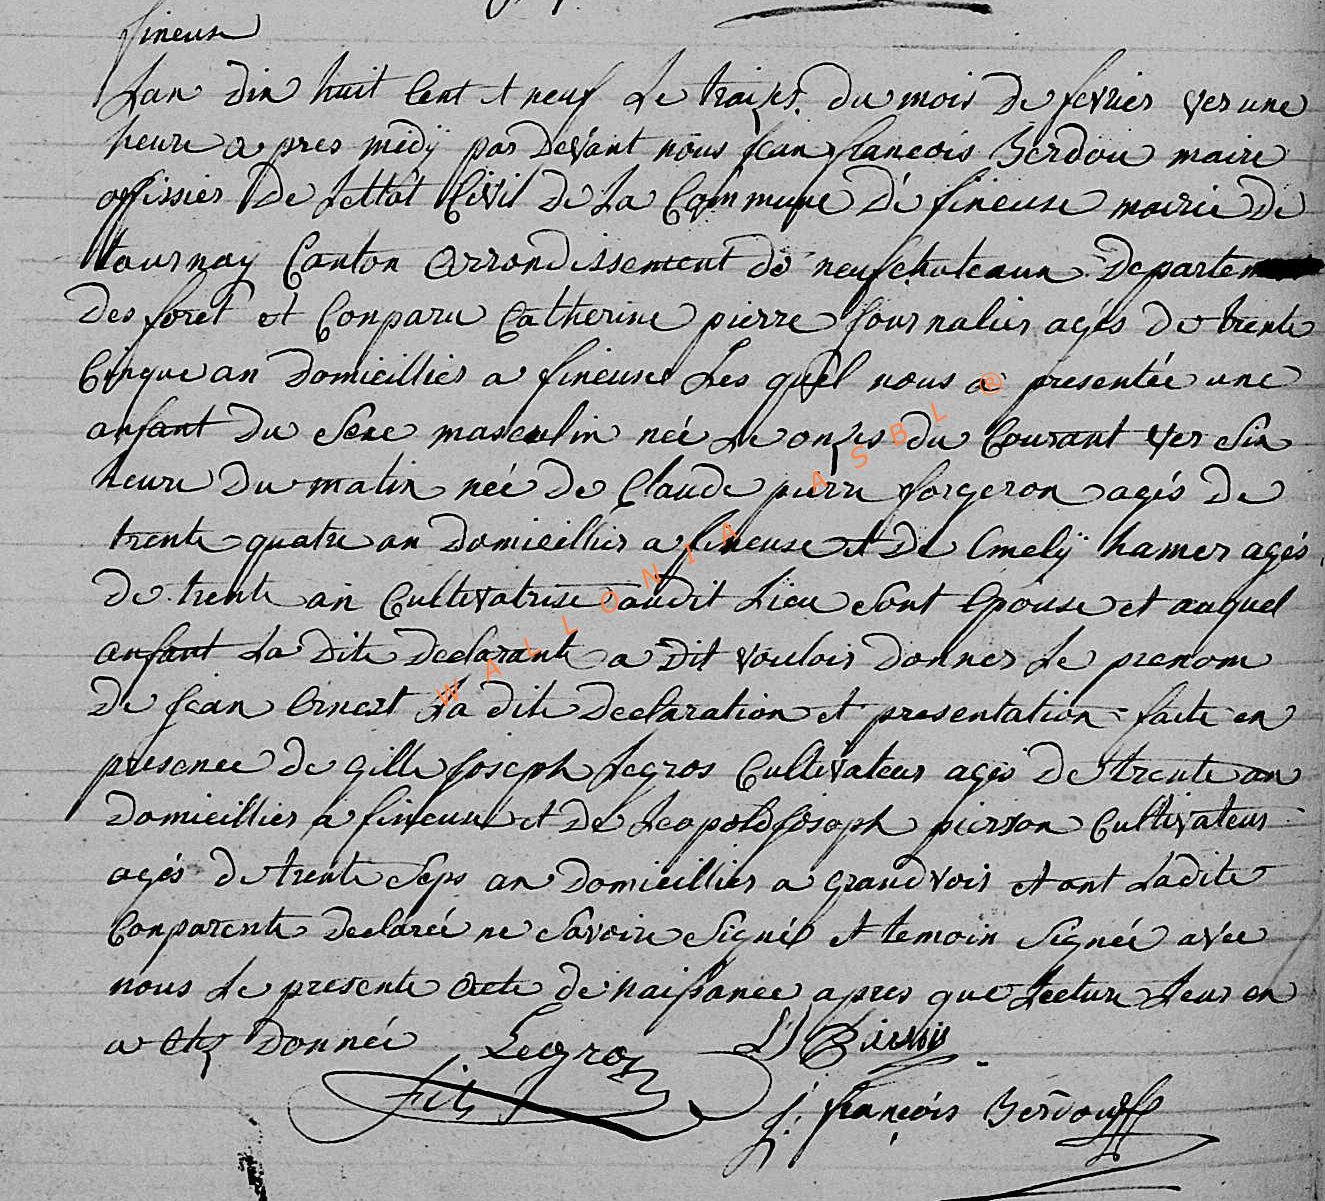 fineuse
Lan dix huit Cent et neuf Le traizes du mois de fevrier ver une
heure a pres midÿ par devant nous jean francois Berdou maire
offissier De Lettat Civil de La Commune De fineuse mairie de
tournay Canton Arrondissement de neufchateaux Departem
Des foret et Conparu Catherine pierre journalier agés de trente
Cinque an Domicillier a fineuse Les quel nous a presentée une
anfant du Sexe masculin née Le onzes du Courant ver Six
heure Du matin née de Claude pierre forgeron agés de
trente quatre an Domicillier a fineuse et De Emelÿ hamer agés
de trente an Cultivatrise audit Lieu Sont Epouse et auquel
anfant La Dite Declarante a Dit vouloir donner Le prenom
De jean Ernest La dite Declaration et presentation faite en
presence de gille joseph Legros Cultivateur agés De trente an
Domicillier a fineuse et De Leopold joseph pierson Cultivateur
agés de trente Seps an Domicillier a grandvoir et ont Ladite
Conparente Declarée ne Savoire Signé et temoin Signée avec
nous Le presente Acte de naissance apres que Lecture Leur en
a etez Donnée Legros LJ Pierson
fils J: françois Berdou
WALLONIA ASBL @